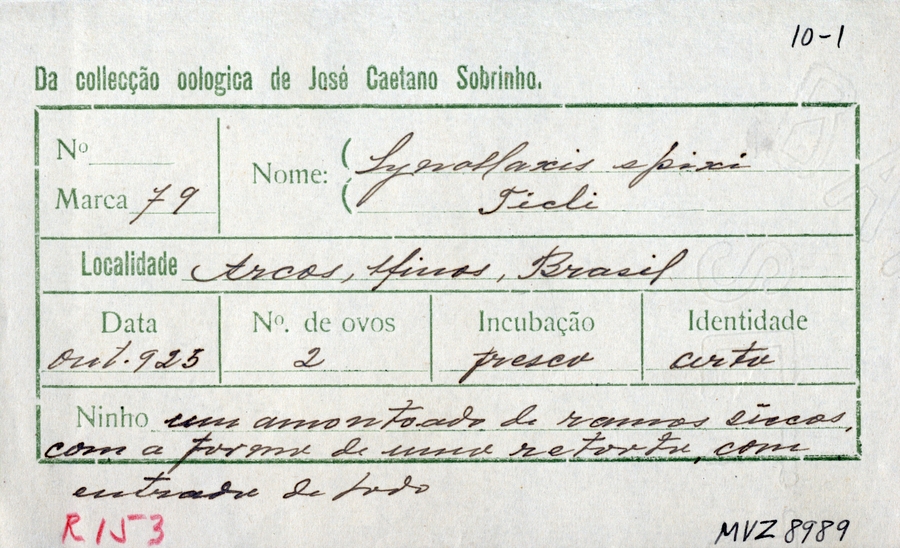 10-1
Da collecção oologica de José Caetano Sobrinho.
Nº
Marca 79
Nome: Synallaxis spixi
Ticli
Localidade Arcos, Minas, Brasil
Data Nº. de ovos Incubação Identidade
Out. 925 2 fresco certa
Ninho um amontoado de ramos sêccos,
com a forma de uma retorta, com
entrada de lado
R153
MVZ 8989